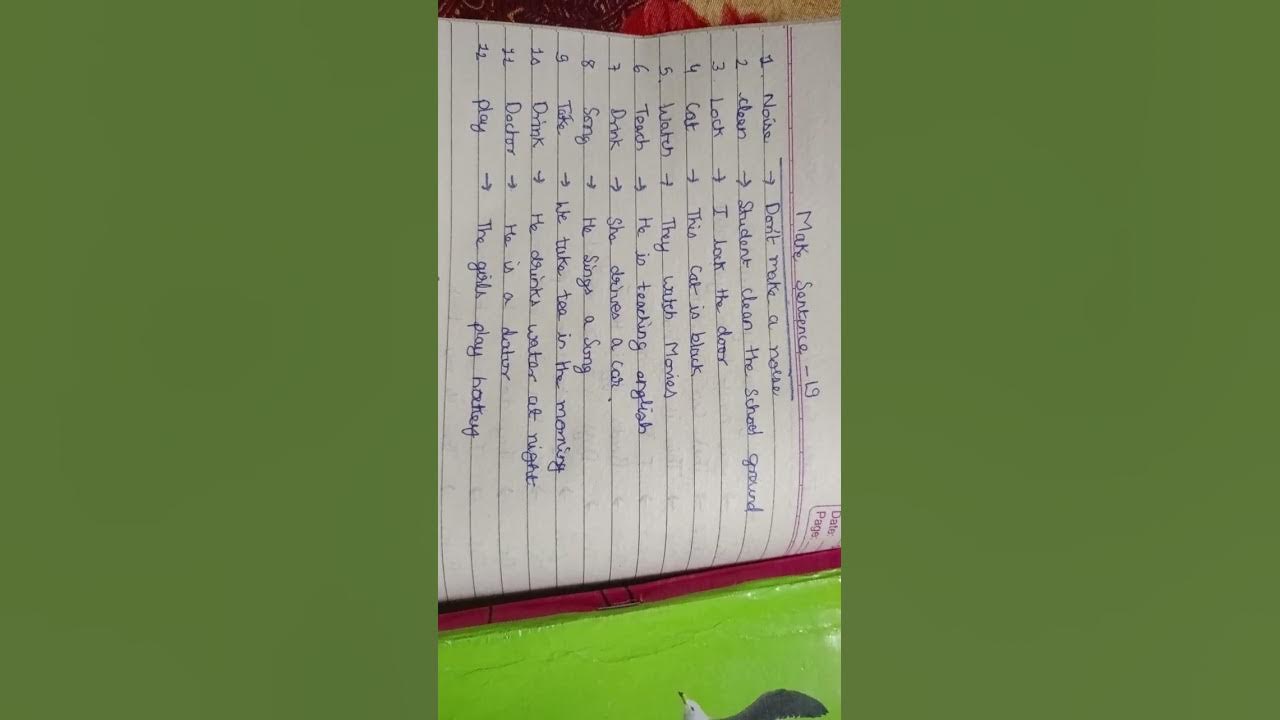 Date:
Page:
Make Sentence - 19
1. Noise → Don't make a noise
2 clean → Student clean the School ground
3 Lock → I lock the door
4 Cat → This Cat is black
5. Watch → They watch Movies
6 Teach → He is teaching english
7 Drink → She drives a car.
8 Song → He Sings a Song
9 Take → We take tea in the morning
10 Drink → He drinks water at night
11 Doctor → He is a doctor
12 play → The girls play hockey